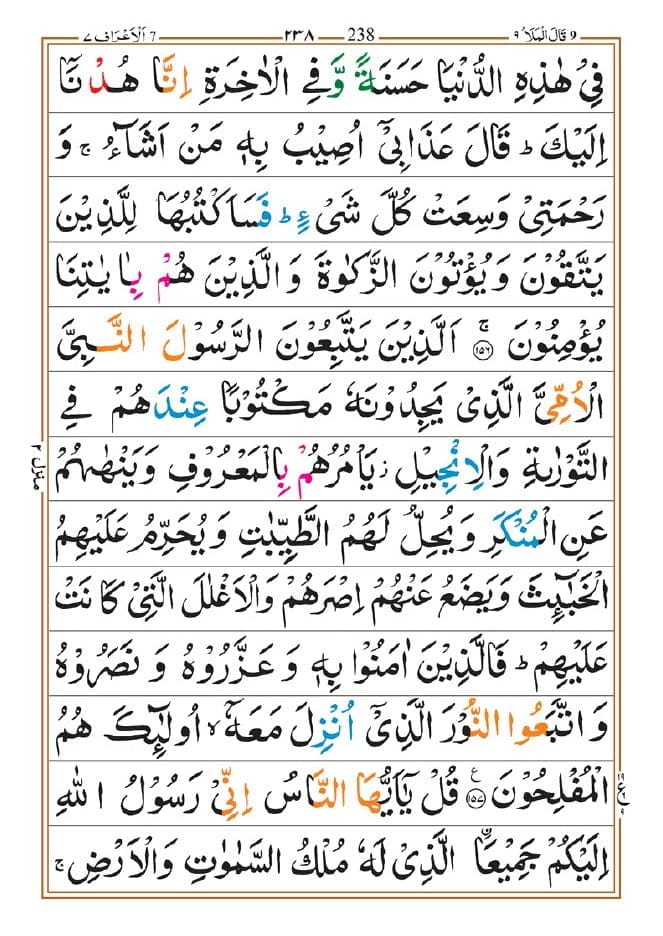 ٩ قَالَ الْمَلَاُ 9 238 ٢٣٨ 7 اَلْاَعْرَاف ٧
فِیْ هٰذِهِ الدُّنْیَا حَسَنَةً وَّ فِی الْاٰخِرَةِ اِنَّا هُدْنَاۤ
اِلَیْكَ ؕ قَالَ عَذَابِیْۤ اُصِیْبُ بِهٖ مَنْ اَشَآءُ ۚ وَ
رَحْمَتِیْ وَسِعَتْ كُلَّ شَیْءٍ ؕ فَسَاَكْتُبُهَا لِلَّذِیْنَ
یَتَّقُوْنَ وَ یُؤْتُوْنَ الزَّكٰوةَ وَ الَّذِیْنَ هُمْ بِاٰیٰتِنَا
یُؤْمِنُوْنَ ۚ ﴿۱۵۶﴾ اَلَّذِیْنَ یَتَّبِعُوْنَ الرَّسُوْلَ النَّبِیَّ
الْاُمِّیَّ الَّذِیْ یَجِدُوْنَهٗ مَكْتُوْبًا عِنْدَهُمْ فِی
التَّوْرٰىةِ وَ الْاِنْجِیْلِ ؗ یَاْمُرُهُمْ بِالْمَعْرُوْفِ وَ یَنْهٰىهُمْ
عَنِ الْمُنْكَرِ وَ یُحِلُّ لَهُمُ الطَّیِّبٰتِ وَ یُحَرِّمُ عَلَیْهِمُ
الْخَبٰٓىِٕثَ وَ یَضَعُ عَنْهُمْ اِصْرَهُمْ وَ الْاَغْلٰلَ الَّتِیْ كَانَتْ
عَلَیْهِمْ ؕ فَالَّذِیْنَ اٰمَنُوْا بِهٖ وَ عَزَّرُوْهُ وَ نَصَرُوْهُ
وَ اتَّبَعُوا النُّوْرَ الَّذِیْۤ اُنْزِلَ مَعَهٗۤ ۙ اُولٰٓىِٕكَ هُمُ
الْمُفْلِحُوْنَ ﴿۱۵۷﴾ ع قُلْ یٰۤاَیُّهَا النَّاسُ اِنِّیْ رَسُوْلُ اللّٰهِ
اِلَیْكُمْ جَمِیْعَاۨ الَّذِیْ لَهٗ مُلْكُ السَّمٰوٰتِ وَ الْاَرْضِ ۚ
منزل ٢
١٩ ع ٩